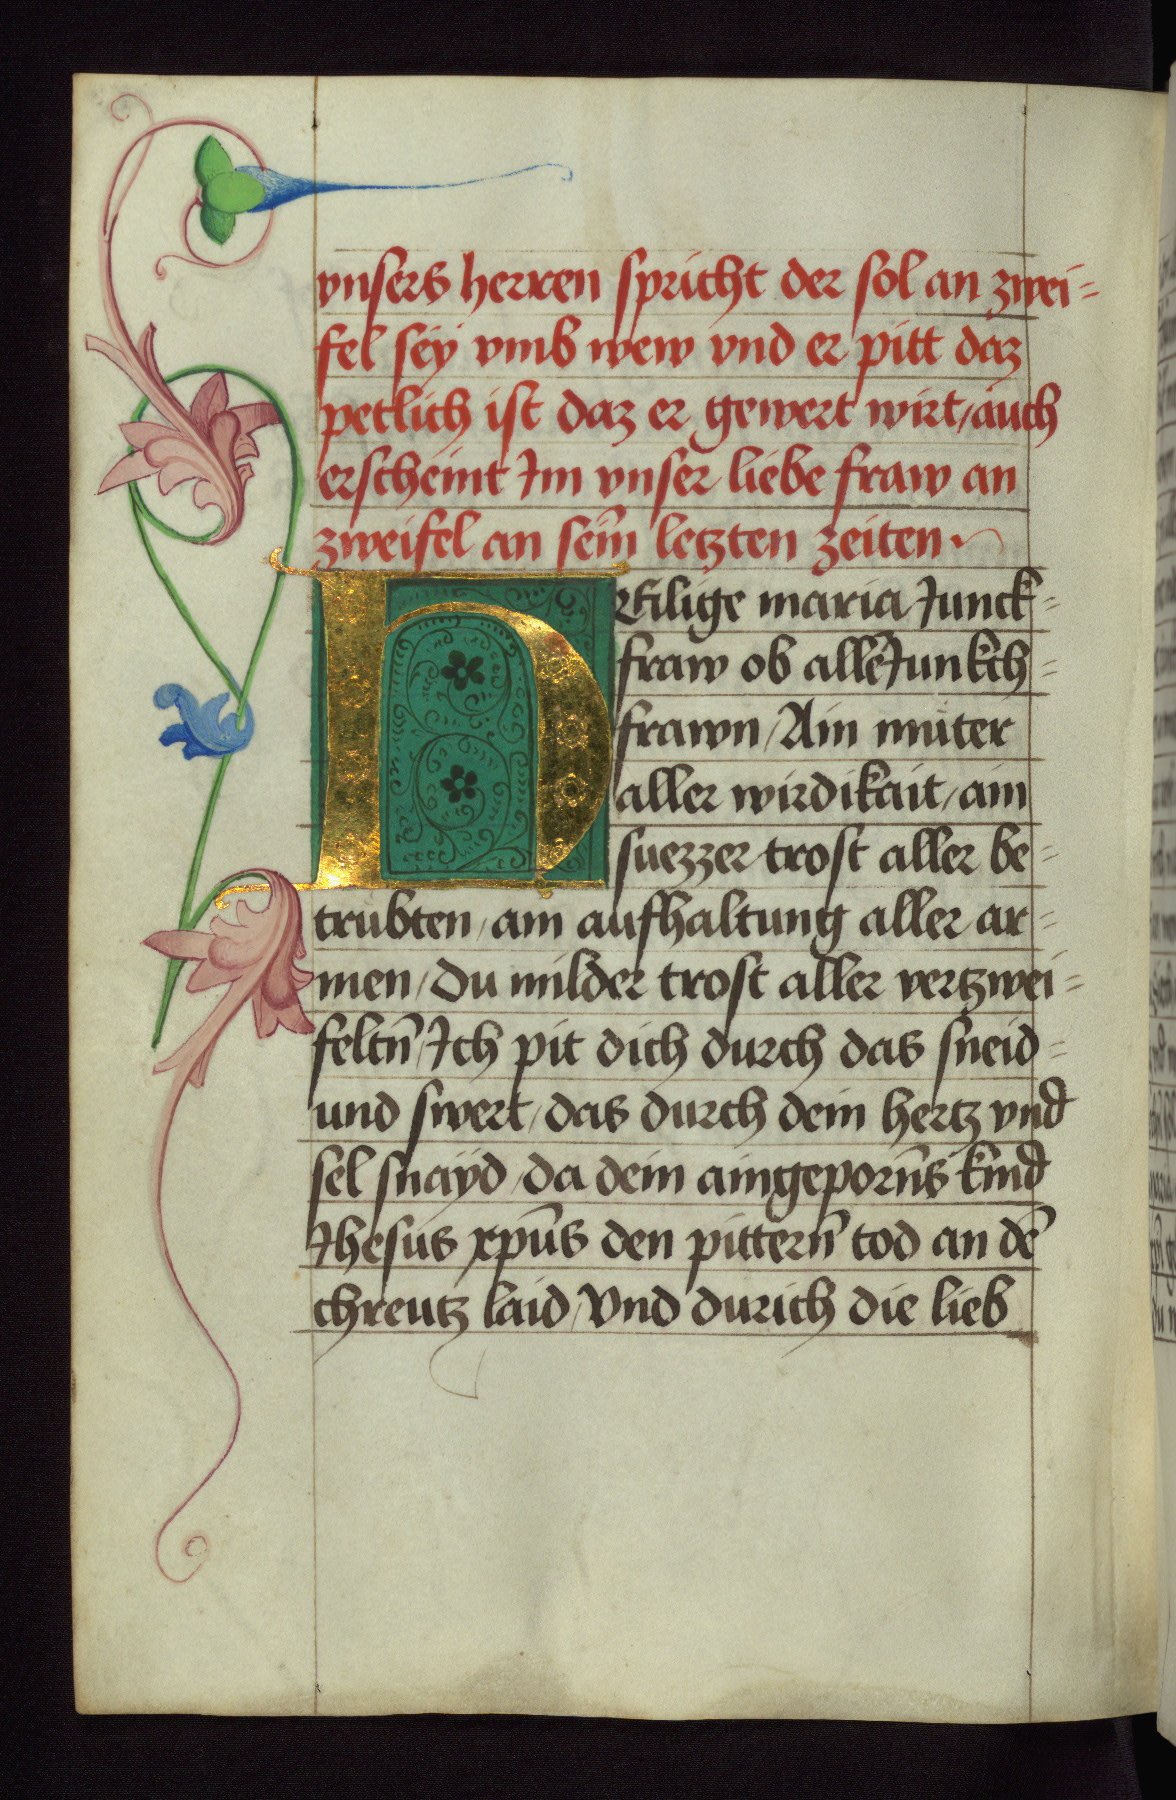 vnsers herren spricht der sol an zwei-
fel sey vmb wew vnd er pitt daz
petlich ist daz er gewert wirt/auch
erscheint Im vnser liebe fraw an
zweifel an sein̄ letzten zeiten·
HEilige maria Junck-
fraw ob alle Junkch-
frawn/Ain muter
aller wirdikait/ain
suezzer trost aller be-
trubten/ain aufhaltung aller ar-
men/Du milder trost aller vertzwei-
feltn̄/Ich pit dich durch das sneid-
und swert/das durch dein hertz vnd
sel snayd/da dein aingeporn̄s kind
Ihesus xp̄us den pittern̄ tod an dē
chreutz laid/Vnd durich die lieb